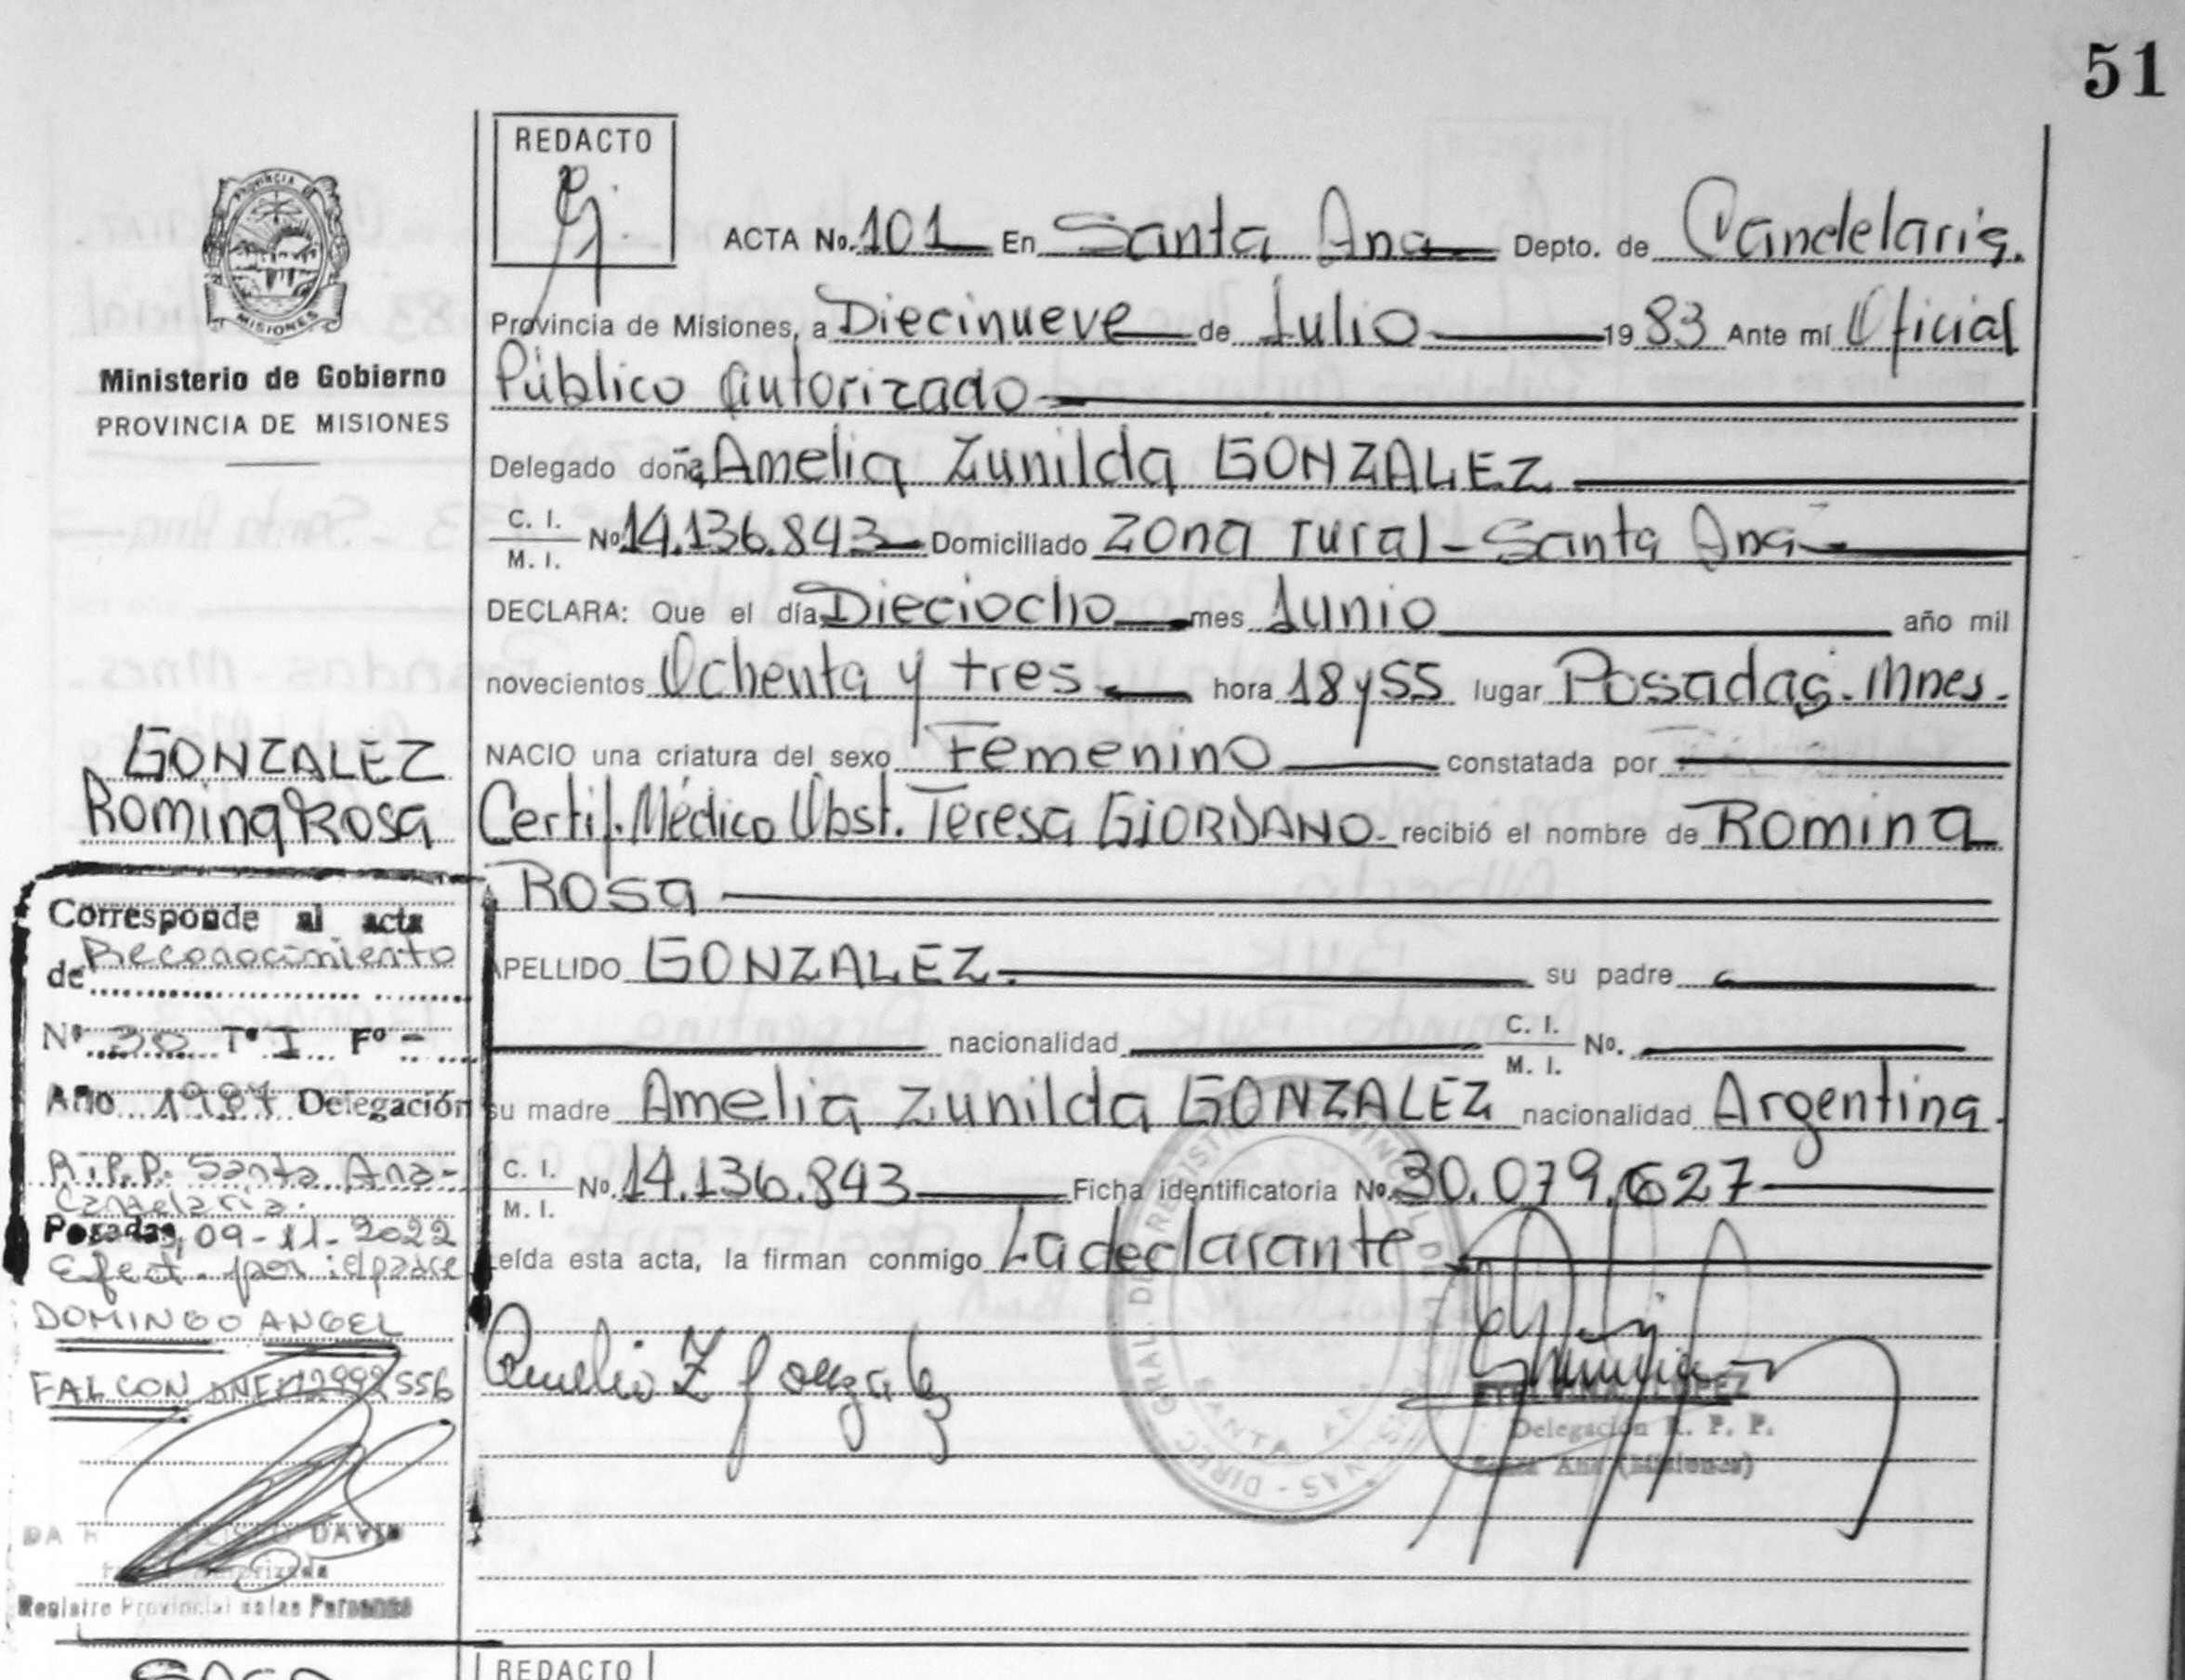 51
REDACTO
PROVINCIA D
MISIONES
Ministerio de Gobierno
PROVINCIA DE MISIONES
ACTA No. 101 En Santa Ana Depto. de Candelaria.
Provincia de Misiones, a Diecinueve de Julio 1983 Ante mí Oficial
Público Autorizado
Delegado doña Amelia Zunilda GONZALEZ
C. I.
M. I. No 14.136.843 Domiciliado Zona rural - Santa Ana
DECLARA: Que el día Dieciocho mes Junio año mil
novecientos Ochenta y tres hora 18 y 55 lugar Posadas. Mnes.
NACIO una criatura del sexo Femenino constatada por
Certif. Médico Obst. Teresa GIORDANO- recibió el nombre de Romina
Rosa
APELLIDO GONZALEZ. su padre
nacionalidad C. I.
M. I. No.
su madre Amelia Zunilda GONZALEZ nacionalidad Argentina.
C. I.
M. I. No. 14.136.843 Ficha identificatoria No. 30.079.627
Leída esta acta, la firman conmigo La declarante
Amelia Z Gonzalez
LOPEZ
Delegación R. P. P.
Santa Ana (Misiones)
GONZALEZ
Romina Rosa
Corresponde al acta
de Reconocimiento
Nº 30 Tº I Fº -
Año 1987 Delegación
R.P.P. Santa Ana-
Candelaria.
Posadas, 09-11-2022
Efect. por el padre
DOMINGO ANGEL
FALCON DNI 12992556
DAVID
Autorizada
Registro Provincial de las Personas
REDACTO